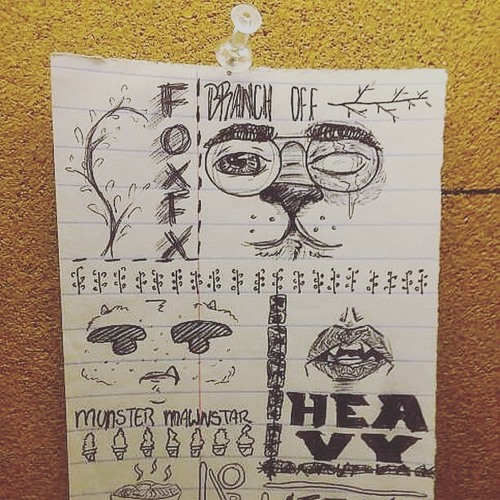 FOXTX
BRANCH OFF
MONSTER MAWNSTAR
HEA
VY